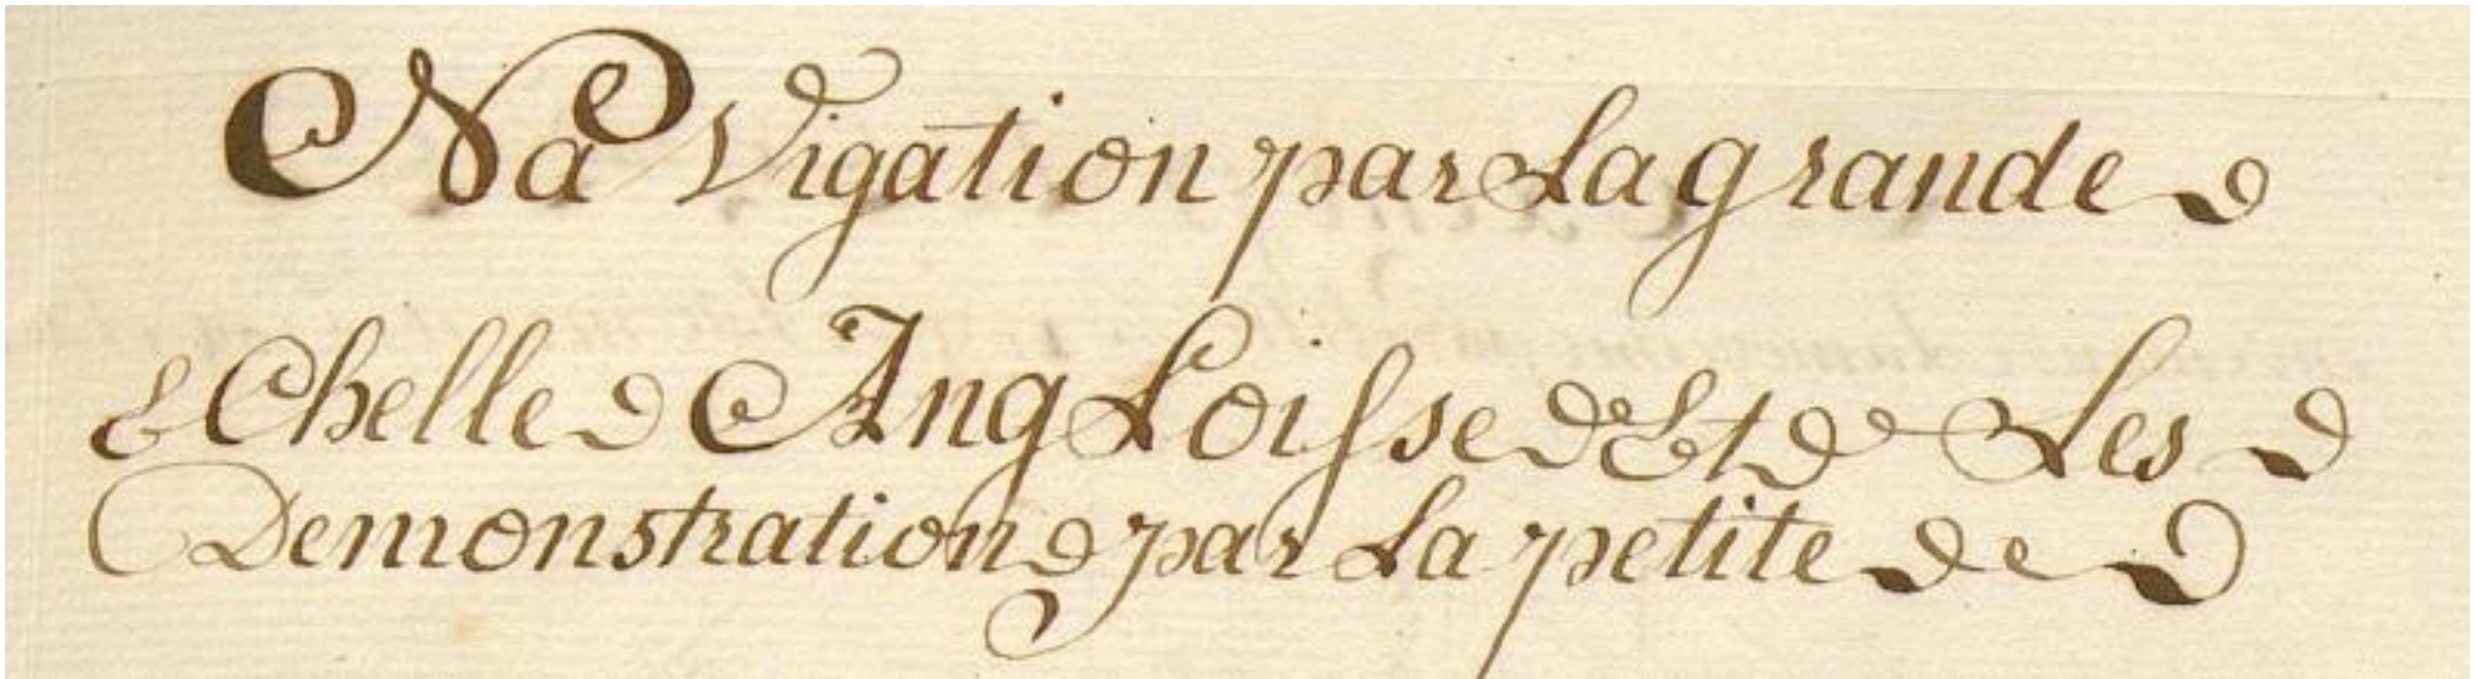 NaVigation par La grande
EChelle AngLoisse Et Les
Demonstration par La petite